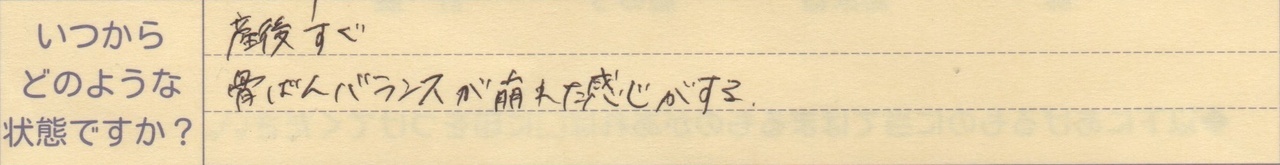 いつから
どのような
状態ですか？
産後すぐ
骨ばんバランスが崩れた感じがする.